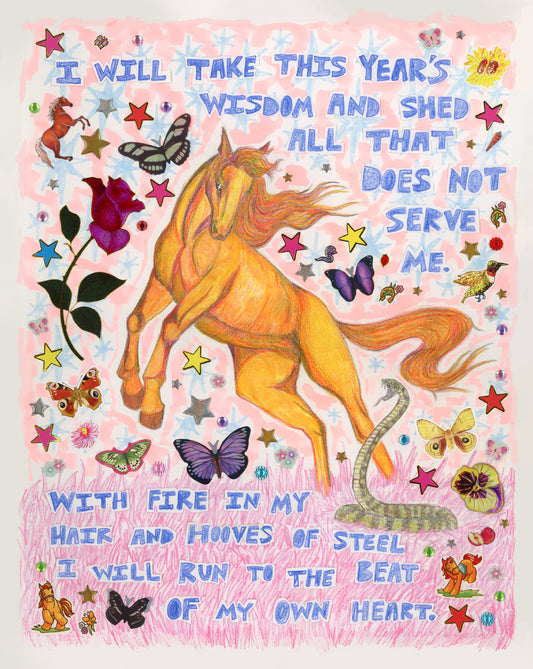 I WILL TAKE THIS YEAR'S
WISDOM AND SHED
ALL THAT
DOES NOT
SERVE
ME.
WITH FIRE IN MY
HAIR AND HOOVES OF STEEL
I WILL RUN TO THE BEAT
OF MY OWN HEART.